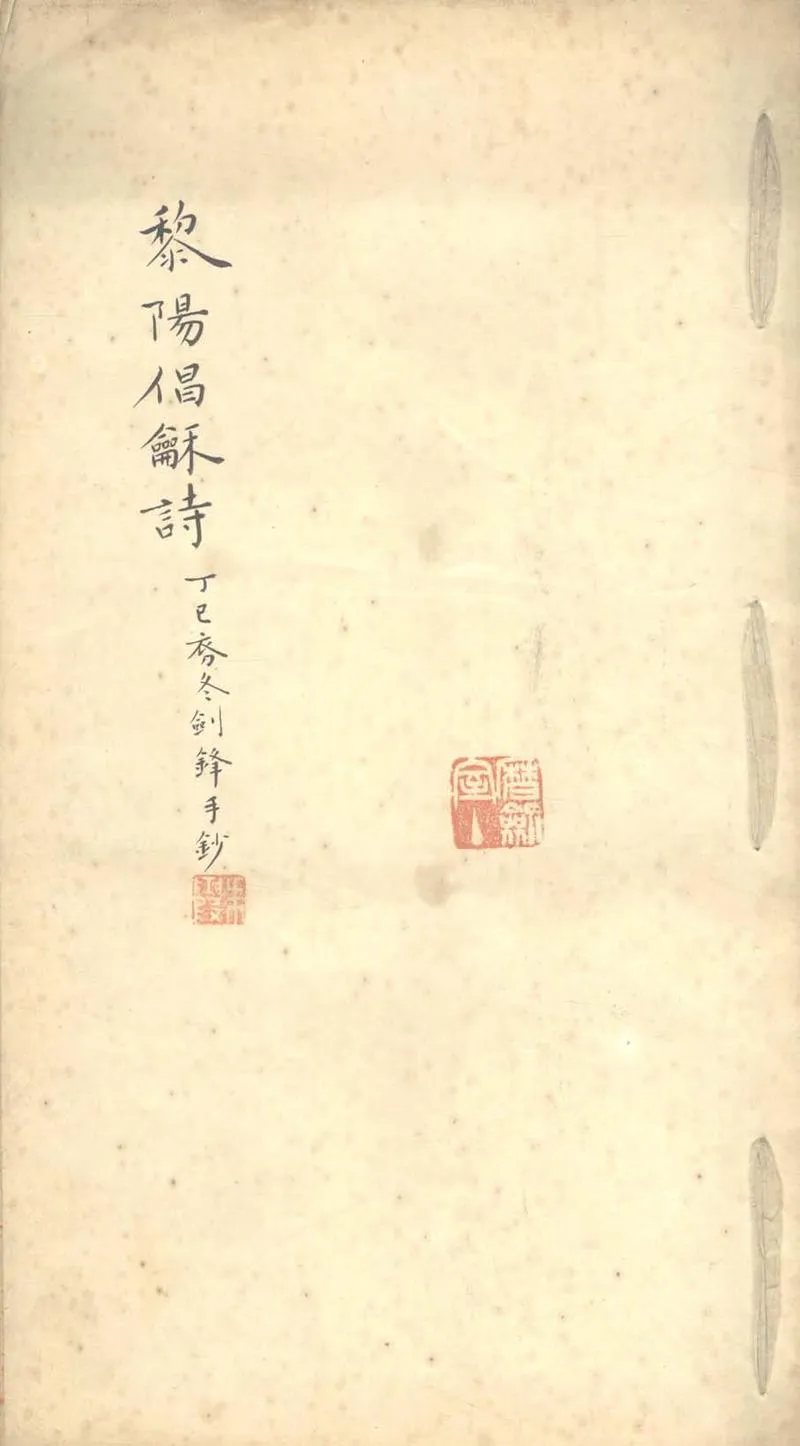 黎陽倡龢詩
丁巳冬劍鋒手鈔